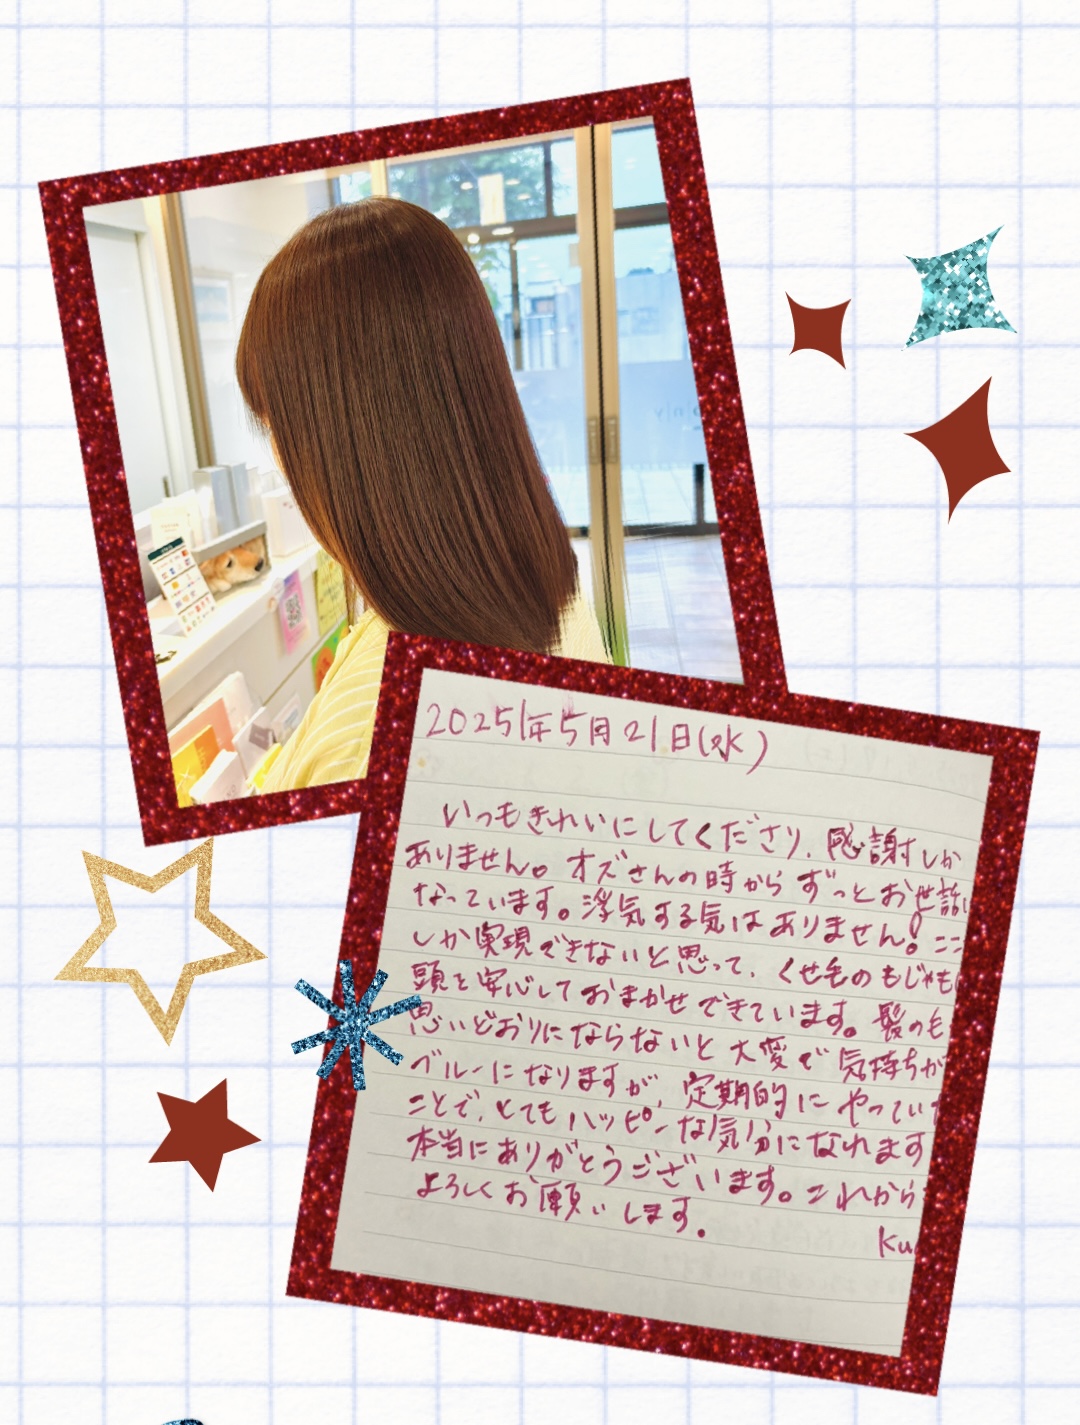 2025年5月21日(水)
いつもきれいにしてくださり、感謝しか
ありません。オズさんの時からずっとお世話に
なっています。浮気する気はありません!ここ
しか実現できないと思って、くせ毛のもじゃも
頭を安心しておまかせできています。髪の毛
思いどおりにならないと大変で気持ちが
ブルーになりますが、定期的にやってい
ことで、とてもハッピーな気分になれます
本当にありがとうございます。これから
よろしくお願いします。
Ku